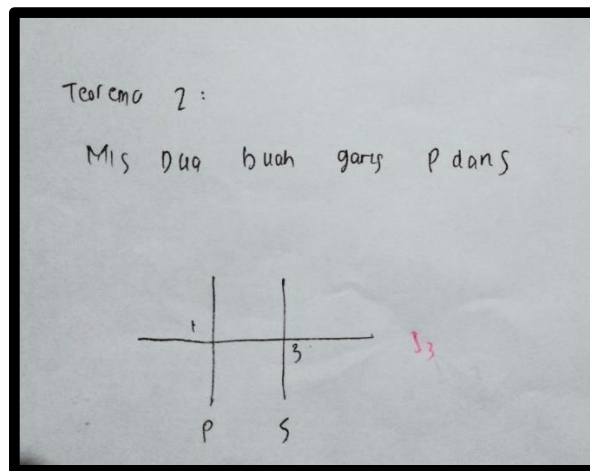 Teorema 2 :
Mis Dua buah garis P dan S
1
3
S3
P S